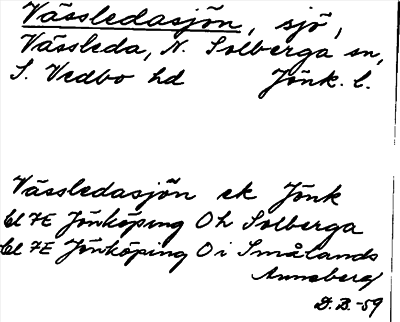 Vässledasjön, sjö,
Vässleda, N. Solberga sn,
S. Vedbo hd Jönk. l.
Vässledasjön ek Jönk
bl 7E Jönköping Oh Solberga
bl 7E Jönköping Oi Smålands
Anneberg
D.B.-59